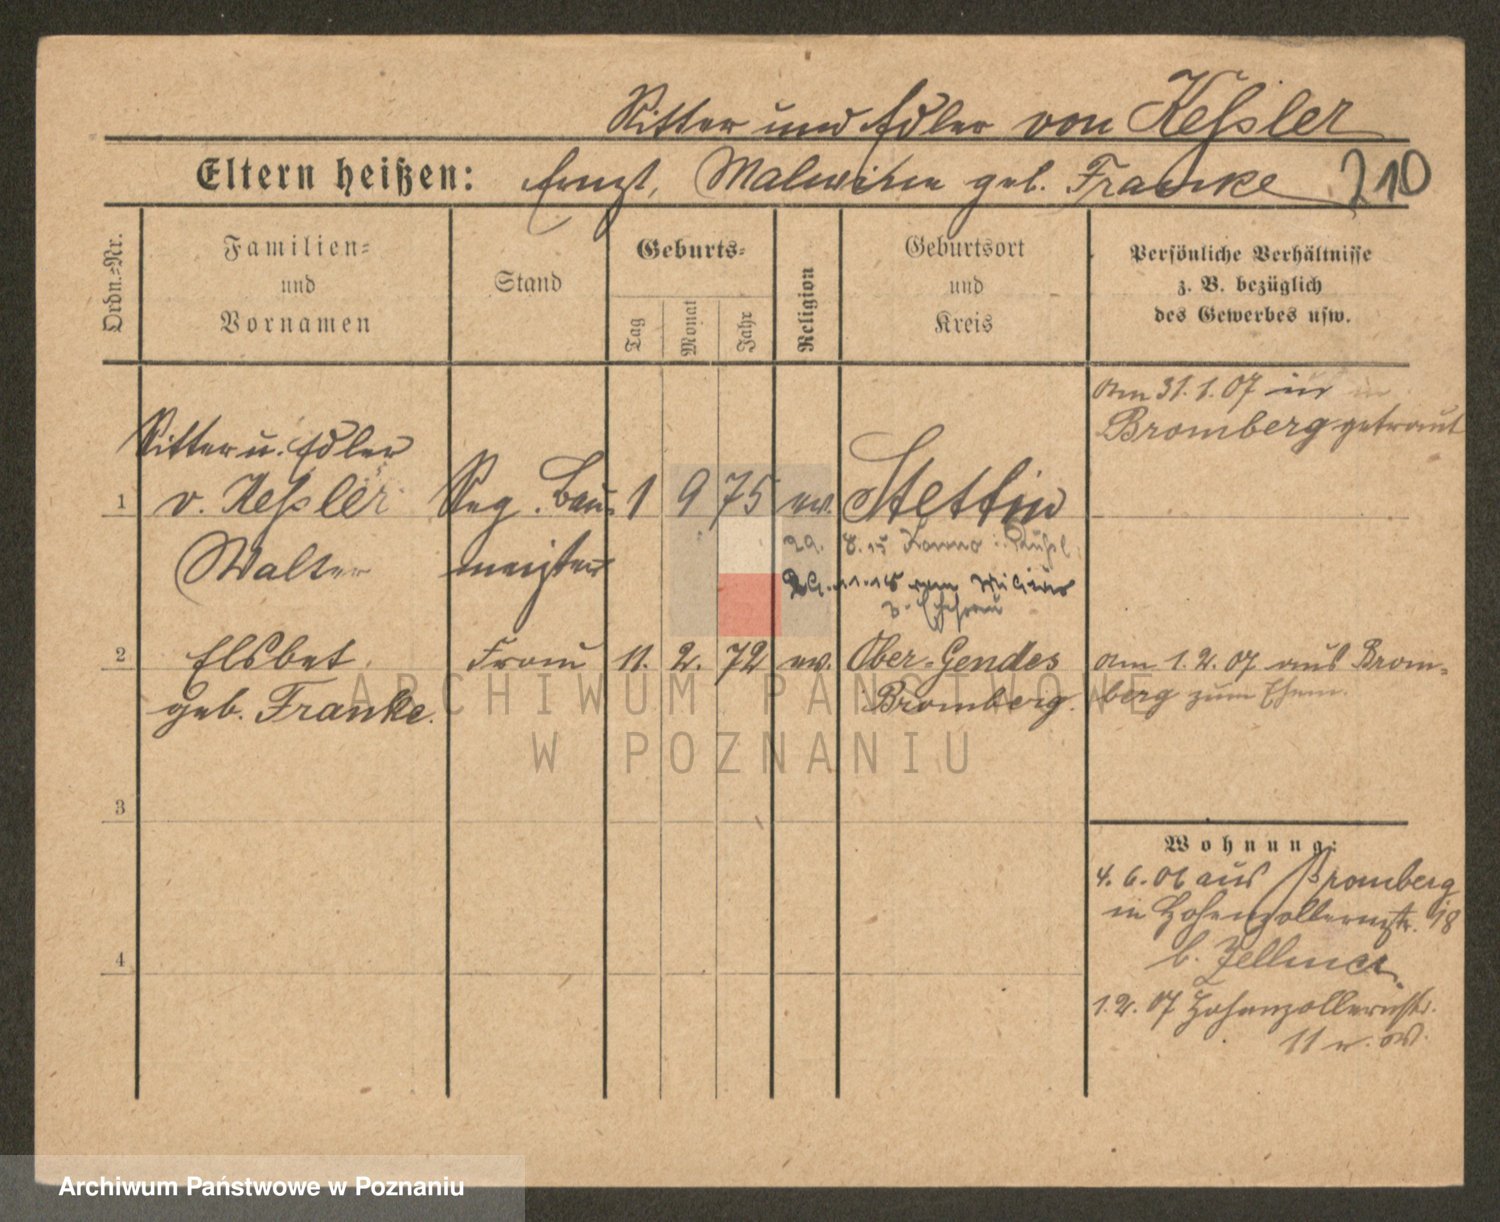 Ritter und Edler von Keßler
Eltern heißen: Ernst, Malwine geb. Franke 210
Ordn.-Nr.
Familien-
und
Vornamen
Stand
Geburts-
Tag
Monat
Jahr
Religion
Geburtsort
und
Kreis
Persönliche Verhältnisse
z. B. bezüglich
des Gewerbes usw.
am 31.1.07 in
Bromberg getraut
Ritter u. Edler
1 v. Keßler Reg. Bau- 1 9 75 ev. Stettin
Walter meister
29. 8. 15
29.11.15 vom
z. Ehefrau
2 Elsbet Frau 11. 2. 72 ev. Ober-Gendes am 1.2.07 aus Brom-
geb. Franke. Bromberg. berg zum Ehem.
ARCHIWUM PAŃSTWOWE
W POZNANIU
3
Wohnung:
4.6.06 aus Bromberg
in Hohenzollernstr. 18
b. Zellmer
4
1.2.07 Hohenzollernstr.
11
Archiwum Państwowe w Poznaniu